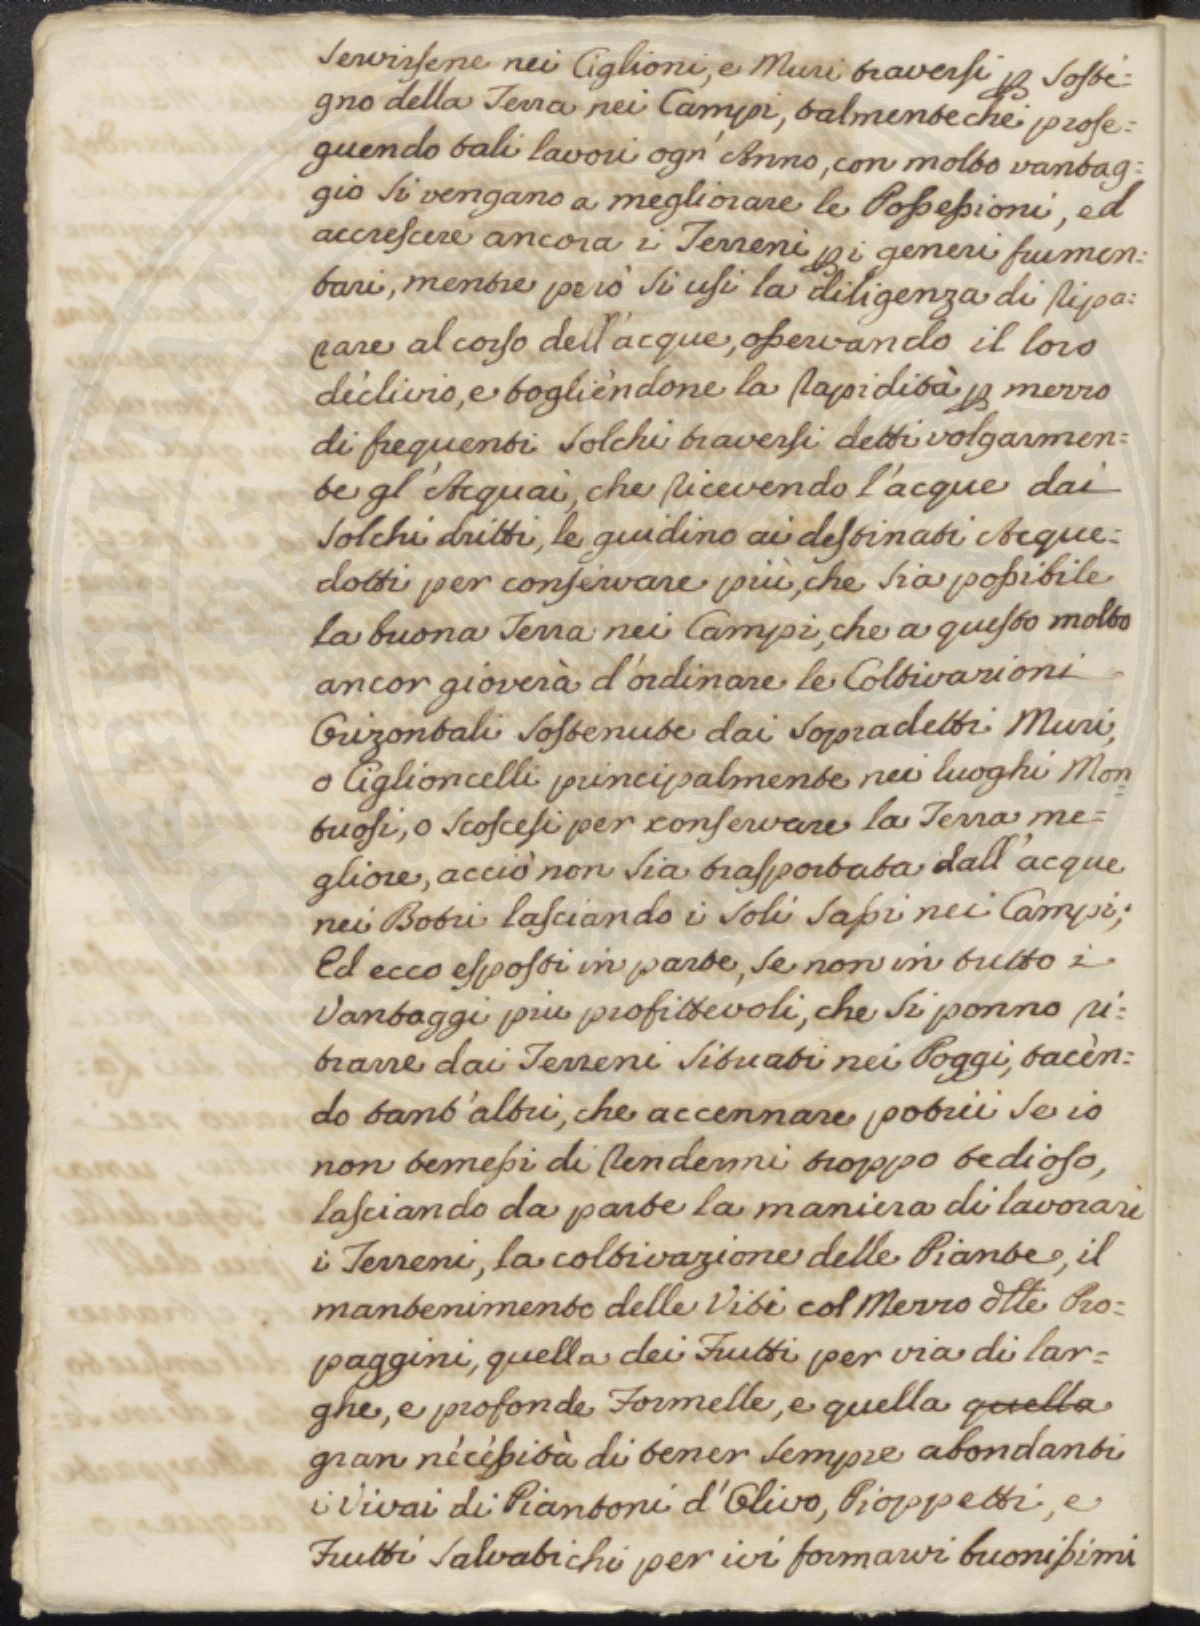 Servirsene nei Ciglioni, e Muri traversi p Soste=
gno della Terra nei Campi, talmenteche prose=
guendo tali lavori ogn'Anno, con molto vantag=
gio Si vengano a megliorare le Possessioni, ed
accrescere ancora i Terreni pi generi frumen=
tari, mentre però Si usi la diligenza di Ripa=
rare al corso dell'acque, osservando il loro
declivio, e togliendone la Rapidità p mezzo
di frequenti Solchi traversi detti volgarmen=
te gl'Acquai, che Ricevendo l'acque dai
Solchi dritti, le guidino ai destinati Acque=
dotti per conservare più, che Sia possibile
la buona Terra nei Campi, che a questo molto
ancor gioverà d'ordinare le Coltivazioni
Orizontali Sostenute dai Sopradetti Muri,
o Ciglioncelli principalmente nei luoghi Mon=
tuosi, o Scoscesi per conservare la Terra me=
gliore, acciò non Sia trasportata dall'acque
nei Botri lasciando i Soli Sassi nei Campi;
Ed ecco esposti in parte, Se non in tutto i
Vantaggi più profittevoli, che Si ponno ri=
trarre dai Terreni Situati nei Poggi, tacèn=
do tant'altri, che accennare potrei Se io
non temessi di Rendermi troppo tedioso,
lasciando da parte la maniera di lavorare
i Terreni, la coltivazione delle Piante, il
mantenimento delle Viti col Mezzo dlle Pro=
paggini, quella dei Frutti per via di lar=
ghe, e profonde Formelle, e quella quella
gran nécéssità di tener Sempre abondanti
i Vivai di Piantoni d'Olivo, Pioppetti, e
Frutti Salvatichi per ivi formarvi buonissimi